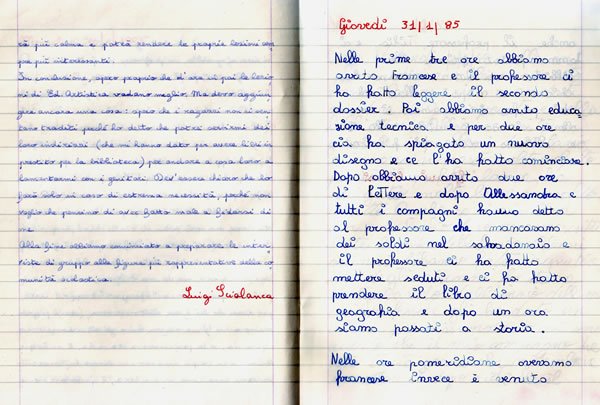 rà più calma e potrà rendere le proprie lezioni sem
pre più interessanti.
In conclusione, spero proprio che d'ora in poi le lezio
ni di Ed. Artistica vadano meglio. Ma devo aggiun
gere ancora una cosa: spero che i ragazzi non si sen
tano traditi perché ho detto che potrei servirmi dei
loro indirizzi (che mi hanno dato per avere libri in
prestito per la biblioteca) per andare a casa loro a
lamentarmi con i genitori. Dev'essere chiaro che lo
farò solo in caso di estrema necessità, perché non
voglio che pensino di aver fatto male a fidarsi di
me.
Alla fine abbiamo cominciato a preparare le inter
viste di gruppo alle figure più rappresentative della co
munità scolastica.
Luigi Scialanca
Giovedì 31/1/85
Nelle prime tre ore abbiamo
avuto Francese e il professore ci
ha fatto leggere il secondo
dossier. Poi abbiamo avuto educa
zione tecnica e per due ore
cia ha spiagato un nuovo
disegno e ce l'ha fatto cominciare.
Dopo abbiamo avuto due ore
di lettere e dopo Alessandra e
tutti i compagni hanno detto
al professore che mancavano
dei soldi nel salvadanaio e
il professore ci ha fatto
mettere seduti e ci ha fatto
prendere il libro di
geografia e dopo un ora
siamo passati a storia.
Nelle ore pomeridiane avevamo
francese invece è venuto